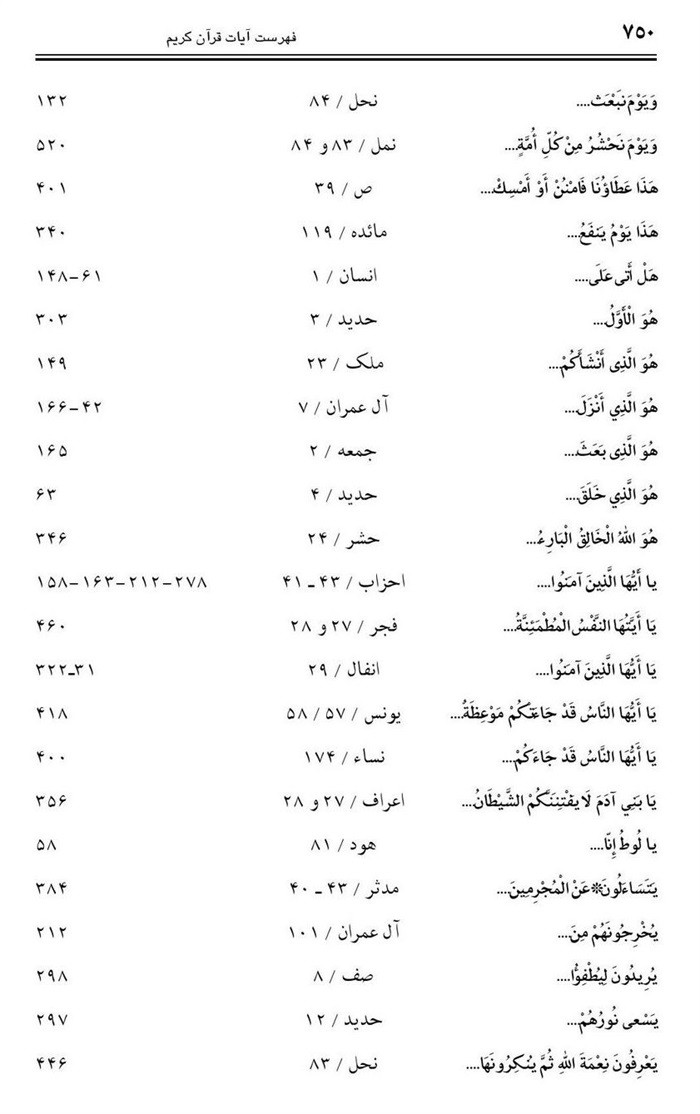 ۷۵۰ فهرست آیات قرآن کریم
وَيَوْمَ نَبْعَث.... نحل / ۸۴ ۱۳۲
وَيَوْمَ نَحْشُرُ مِنْ كُلِّ أُمَّةٍ.... نمل / ۸۳ و ۸۴ ۵۲۰
هَذَا عَطَاؤُنَا فَامْنُنْ أَوْ أَمْسِكْ... ص / ۳۹ ۴۰۱
هَذَا يَوْمُ يَنفَعُ... مائده / ۱۱۹ ۳۴۰
هَلْ أَتى عَلَى.... انسان / ۱ ۶۱-۱۴۸
هُوَ الْأَوَّلُ... حدید / ۳ ۳۰۳
هُوَ الَّذِى أَنْشَأَكُمْ... ملک / ۲۳ ۱۴۹
هُوَ الَّذِي أَنْزَلَ... آل عمران / ۷ ۴۲-۱۶۶
هُوَ الَّذِى بَعَثَ... جمعه / ۲ ۱۶۵
هُوَ الَّذِي خَلَقَ... حدید / ۴ ۶۳
هُوَ اللهُ الْخَالِقُ الْبَارِءُ... حشر / ۲۴ ۳۴۶
يا أَيُّهَا الَّذِينَ آمَنُوا.... احزاب / ۴۳ ـ ۴۱ ۲۷۸-۲۱۲-۱۶۳-۱۵۸
يَا أَيَّتُهَا النَّفْسُ الْمُطْمَئِنَّةُ... فجر / ۲۷ و ۲۸ ۴۶۰
يَا أَيُّهَا الَّذِينَ آمَنُوا.... انفال / ۲۹ ۳۱ـ۳۲۲
يَا أَيُّهَا النَّاسُ قَدْ جَاءَتكُمْ مَوْعِظَةُ.... یونس / ۵۷ / ۵۸ ۴۱۸
يَا أَيُّهَا النَّاسُ قَدْ جَاءَكُمْ... نساء / ۱۷۴ ۴۰۰
يَا بَنِي آدَمَ لَا يفْتِنَنَّكُمْ الشَّيْطَانُ... اعراف / ۲۷ و ۲۸ ۳۵۶
يا لُوطُ إِنّا.... هود / ۸۱ ۵۸
يَتَسَاءَلُونَ*عَنْ الْمُجْرِمِينَ... مدثر / ۴۳ ـ ۴۰ ۳۸۴
يُخْرِجُونَهُمْ مِنَ... آل عمران / ۱۰۱ ۲۱۲
يُرِيدُونَ لِيُطْفِؤُا.... صف / ۸ ۲۹۸
يَسْعى نُورُهُمْ... حدید / ۱۲ ۲۹۷
يَعْرِفُونَ نِعْمَةَ اللهِ ثُمَّ يُنكِرُونَهَا.... نحل / ۸۳ ۴۴۶